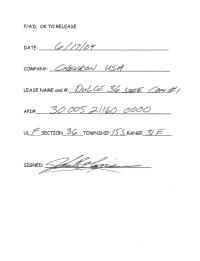 P/A'D. OK TO RELEASE
DATE: 6/17/04
COMPANY: CHEVRON USA
LEASE NAME and #. DULCE 36 STATE COM #1
API# 30 005 21160 0000
UL F SECTION 36 TOWNSHIP 15S RANGE 31 E
SIGNED: